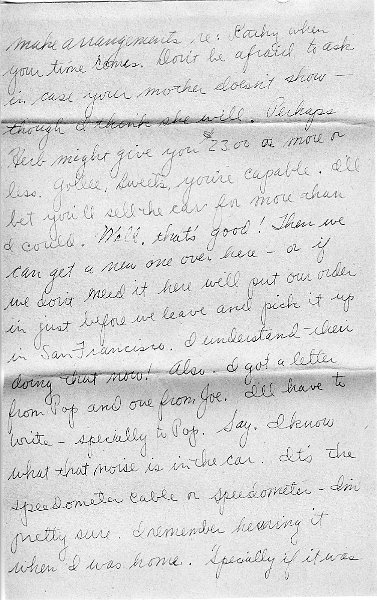 make arrangements re: Kathy when
your time comes. Don't be afraid to ask
in case your mother doesn't show -
though I think she will. Perhaps
Herb might give you $2300 or more or
less. Gollee, Sweets, you're capable. I'll
bet you'll sell the car for more than
I could. Well, that's good! Then we
can get a new one over here - or if
we don't need it here we'll put our order
in just before we leave and pick it up
in San Francisco. I understand their
doing that now! Also - I got a letter
from Pop and one from Joe. I'll have to
write - specially to Pop. Say. I know
what that noise is in the car. Its the
speedometer cable or speedometer - I'm
pretty sure. I remember hearing it
when I was home. Specially if it was